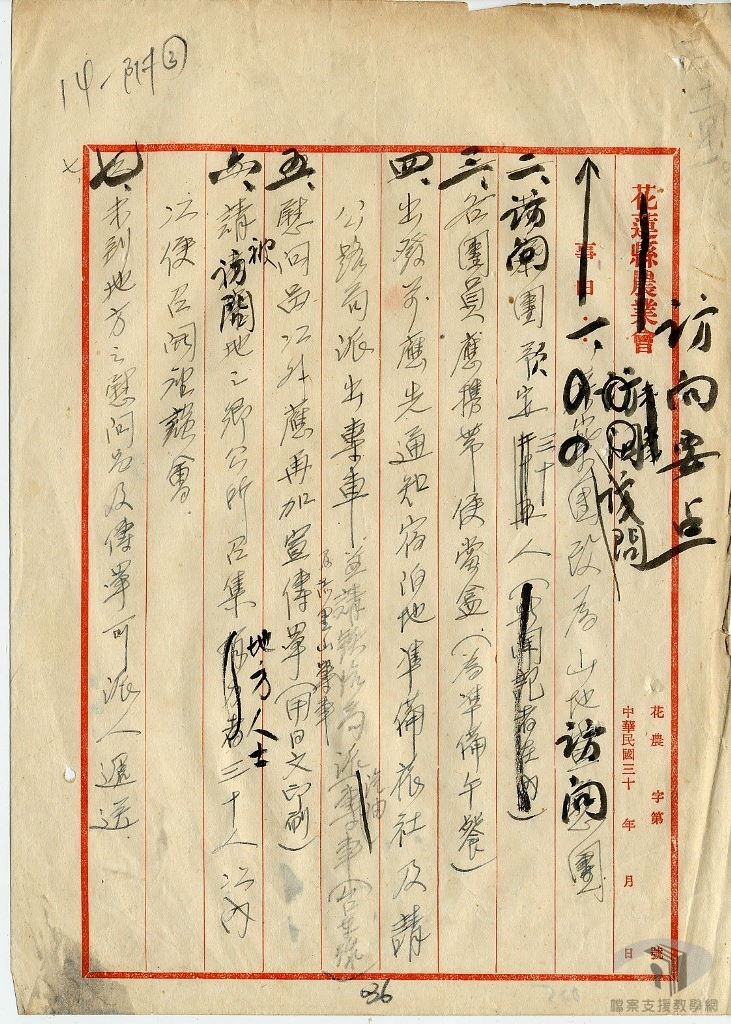 14-附③
花蓮縣農業會
事由
花農字第 號
中華民國三十 年 月 日
訪问要点
一、慰安團改為山地訪问團
二、訪問團預定三十五人(新聞記者在內)
三、各團員應携帶便當盒(為準備午餐)
四、出發前應先通知宿泊地準備旅社及請
公路局派出專車並請鐵路局派汽油車(台東線)
及赤里山專車
五、慰问品以外應再加宣傳單(用日文印刷)
六、請被訪問地之鄉公所召集地方人士三十人以內
以便召開座談會
七、未到地方之慰问品及傳單可派人遞送
036
檔案支援教學網